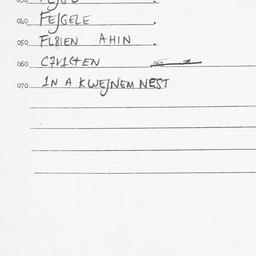 040 FEJGELE .
050 FLIEN AHIN .
060
070 IN A KWEJNEM NEST